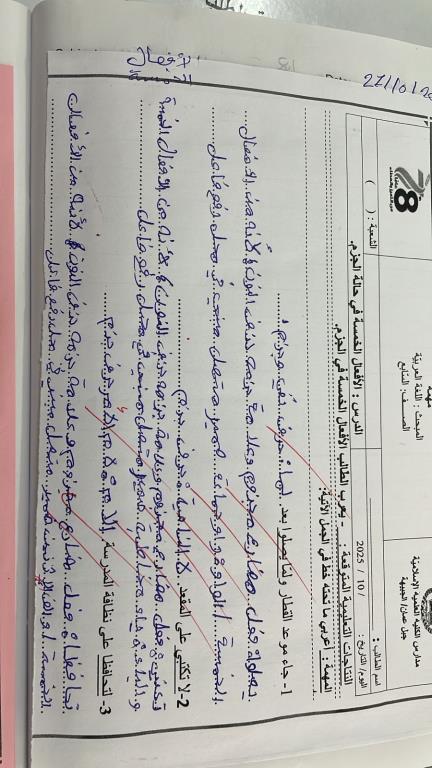 27/10/20
مهمة
مدارس الكلية العلمية الإسلامية
جبل عمان/ الجبيهة
المبحث: اللغة العربية
الصف: التاسع
78
اسم الطالب:
الشعبة: ( )
اليوم/ التاريخ: / 10 / 2025
الدرس: الأفعال الخمسة في حالة الجزم.
النتاجات التعليمية المتوقعة: - يعرب الطالب الأفعال الخمسة في الجزم.
المهمة: أعربي ما تحته خط في الجمل الآتية:
1- جاء موعد القطار ولما يصلوا بعد. لما: حرف نفي وجزم.
يصلوا: فعل مضارع مجزوم وعلامة جزمه حذف النون لأنه من الأفعال
الخمسة. الواو: واو الجماعة ضمير متصل مبني في محل رفع فاعل
2- لا تكتبي على المقعد. لا الناهية: حرف جزم
تكتبي: فعل مضارع مجزوم وعلامة جزمه حذف النون لأنه من الأفعال الخمسة
والياء ياء مخاطبة ضمير متصل مبني في محل رفع فاعل
3- لتحافظا على نظافة المدرسة. لام الأمر حرف جزم
تحافظا: فعل مضارع مجزوم وعلامة جزمه حذف النون لأنه من الأفعال
الخمسة. ضمير متصل مبني في محل رفع فاعل